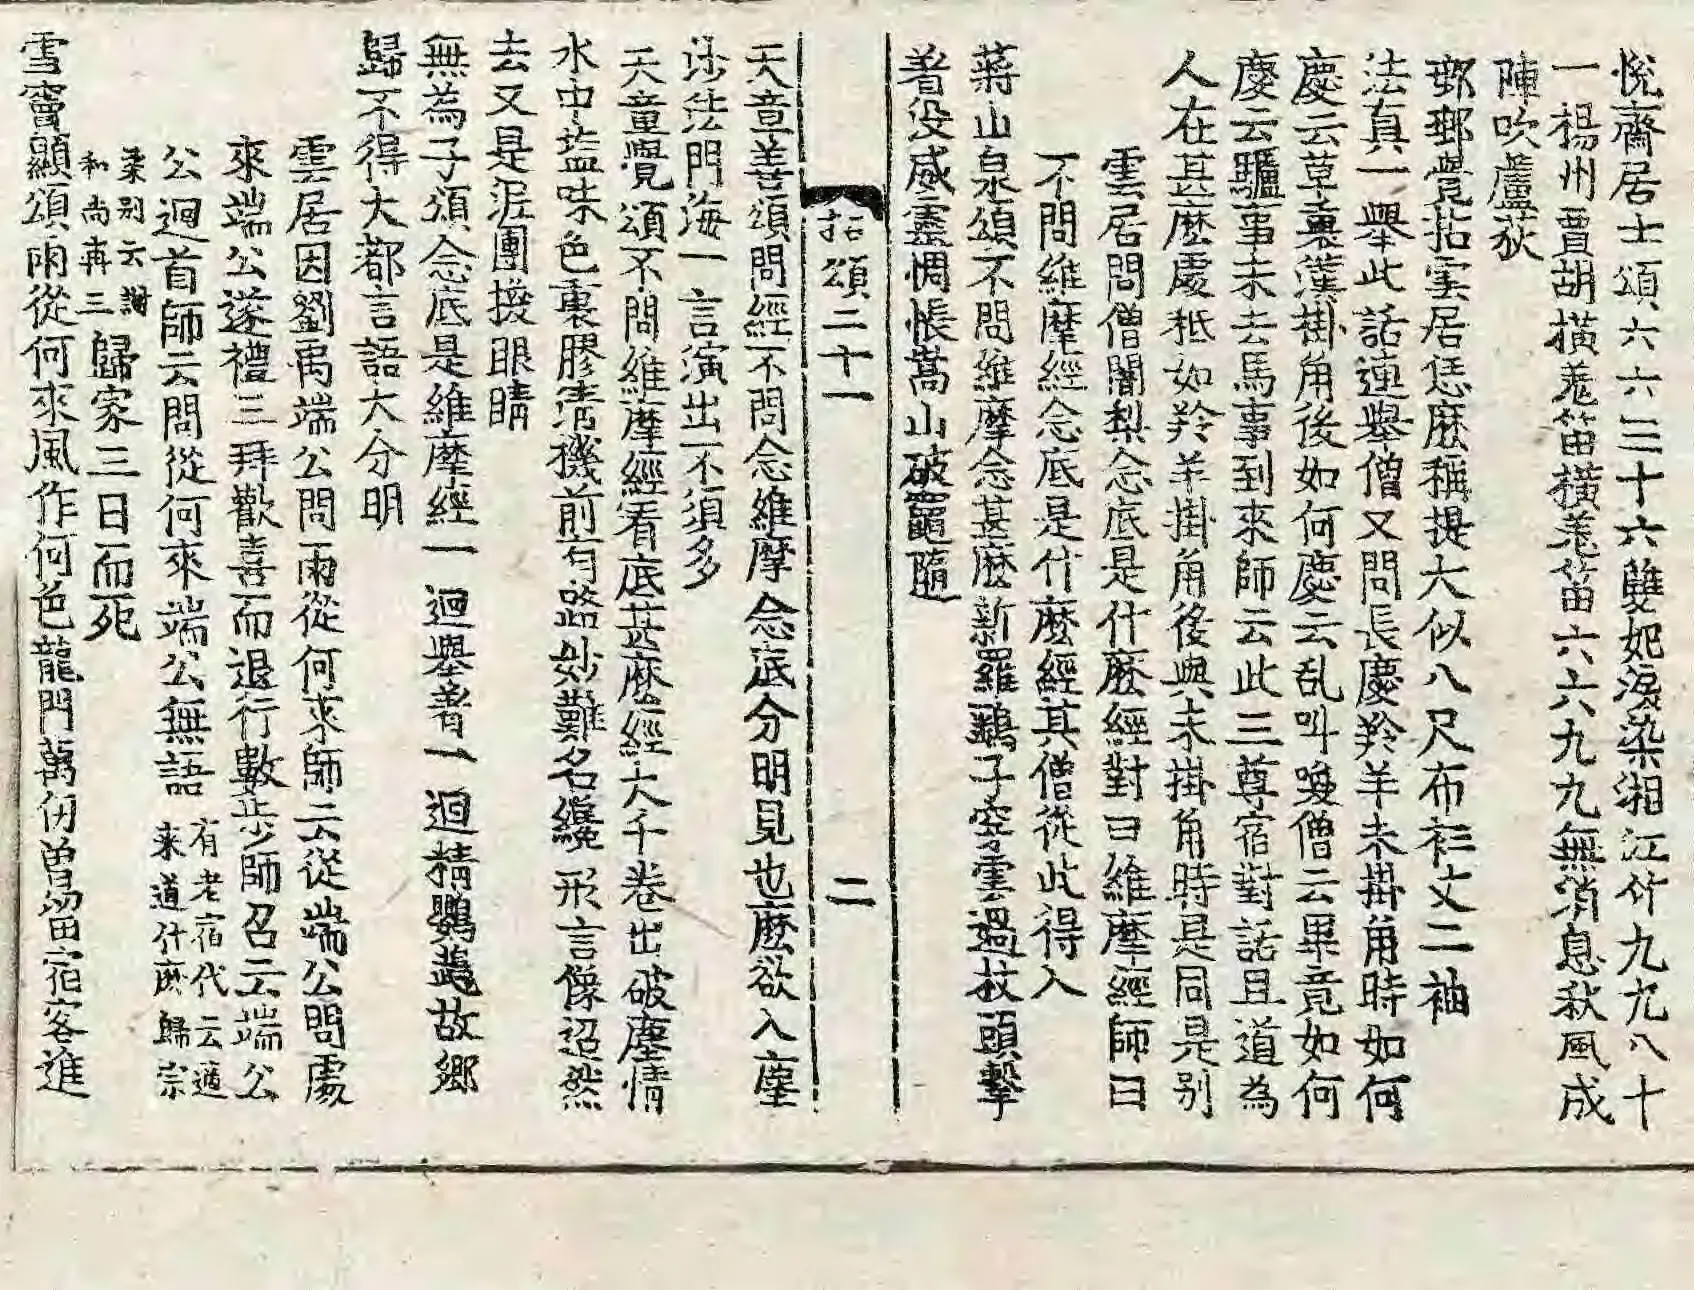 悅齋居士頌六六三十六雙妃淚染湘江竹九九八十
一楊州賈胡橫羗笛橫羗笛六六九九無消息秋風成
陣吹蘆荻
瑯琊覺拈雲居恁麽稱提大似八尺布衫丈二袖
法真一舉此話連舉僧又問長慶羚羊未掛角時如何
慶云草裏漢掛角後如何慶云乱叫喚僧云畢竟如何
慶云驢事未去馬事到來師云此三尊宿對話且道為
人在甚麽處秪如羚羊掛角後與未掛角時是同是别
雲居問僧闍梨念底是什麽經對曰維摩經師曰
不問維摩經念底是什麽經其僧從此得入
蔣山泉頌不問維摩念甚麽新羅鷂子穿雲過杖頭擊
着没威靈惆悵嵩山破竈隨
拈頌二十一 二
天章善頌問經不問念維摩念底分明見也麽欲入塵
沙法門海一言演出不須多
天童覺頌不問維摩經看底甚麽經大千卷出破塵情
水中塩味色裏膠清機前有路妙難名纔形言像迢然
去又是泥團換眼睛
無為子頌念底是維摩經一迴舉著一迴精鸚鵡故鄉
歸不得大都言語大分明
雲居因劉禹端公問雨從何來師云從端公問處
來端公遂禮三拜歡喜而退行數步師召云端公
公迴首師云問從何來端公無語 有老宿代云適來道什麽歸宗
柔别云謝和尚再三 歸家三日而死
雪竇顯頌雨從何來風作何色龍門萬仞曽留宿客進